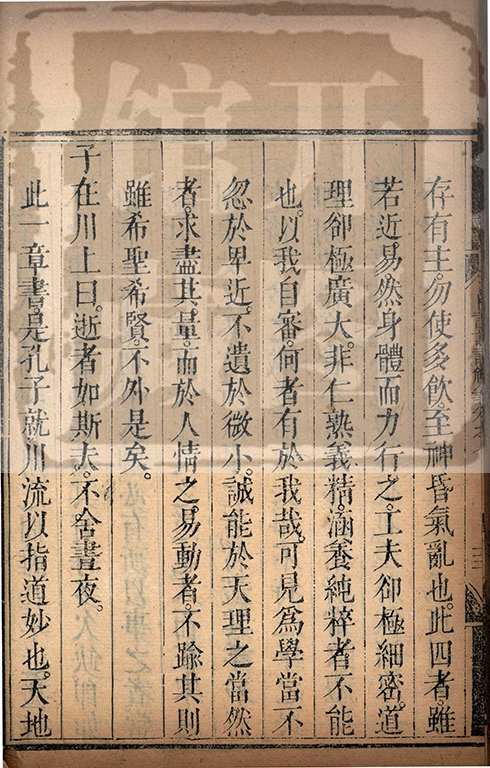 存有主。勿使多飲至神昏氣亂也。此四者。雖
若近易。然身體而力行之。工夫卻極細密。道
理卻極廣大。非仁熟義精。涵養純粹者不能
也。以我自審。何者有於我哉。可見爲學當不
忽於卑近。不遺於微小。誠能於天理之當然
者。求盡其量。而於人情之易動者。不踰其則
雖希聖希賢。不外是矣。
子在川上曰。逝者如斯夫。不舍晝夜。
此一章書。是孔子就川流以指道妙也。天地